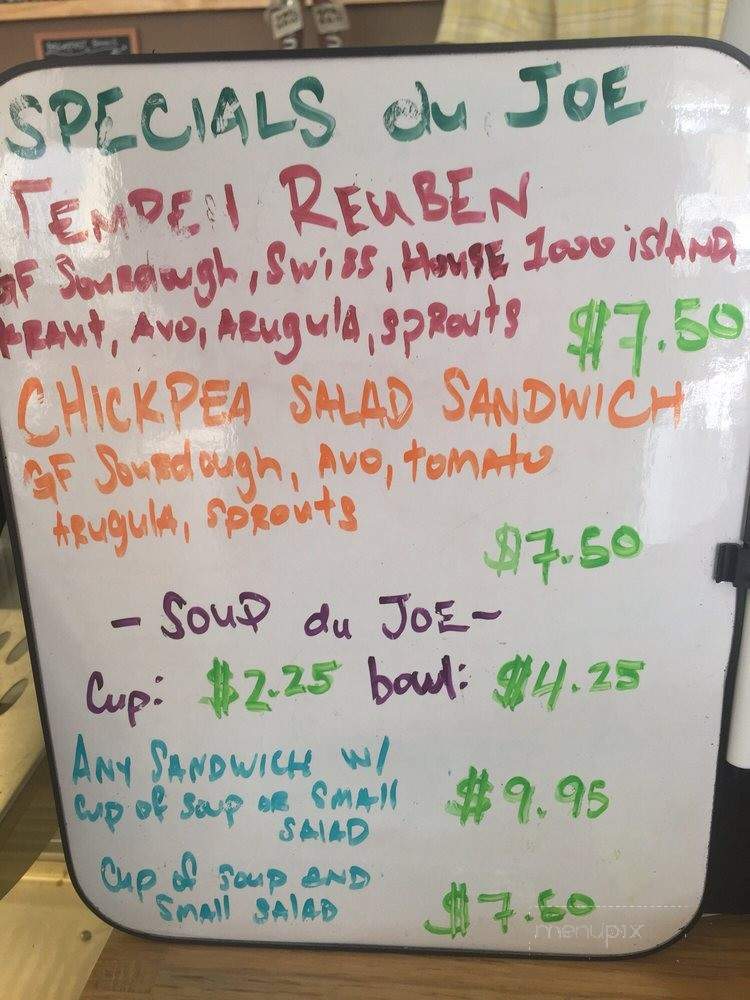 SPECIALS du JOE
TEMPEH REUBEN
GF Sourdough, Swiss, House 1000 island
kraut, Avo, Arugula, sprouts $7.50
CHICKPEA SALAD SANDWICH
GF Sourdough, Avo, tomato
Arugula, sprouts
$7.50
- SOUP du JOE -
Cup: $2.25 bowl: $4.25
ANY SANDWICH W/
cup of soup or small
SALAD
$9.95
Cup of soup and
small salad
$7.50
menupix